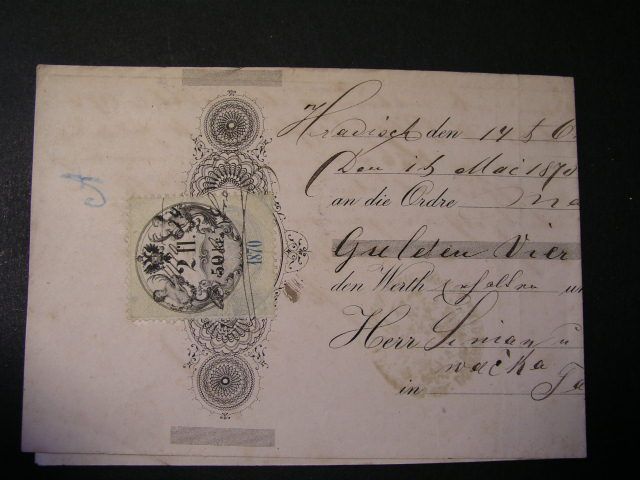 Hradisch den 14
Den 15 Mai 1870
an die Ordre
Gulden Vier
den Werth erhalten
Herr Simian
wačka
in
A
2 Fl.
50 Kr.
1870